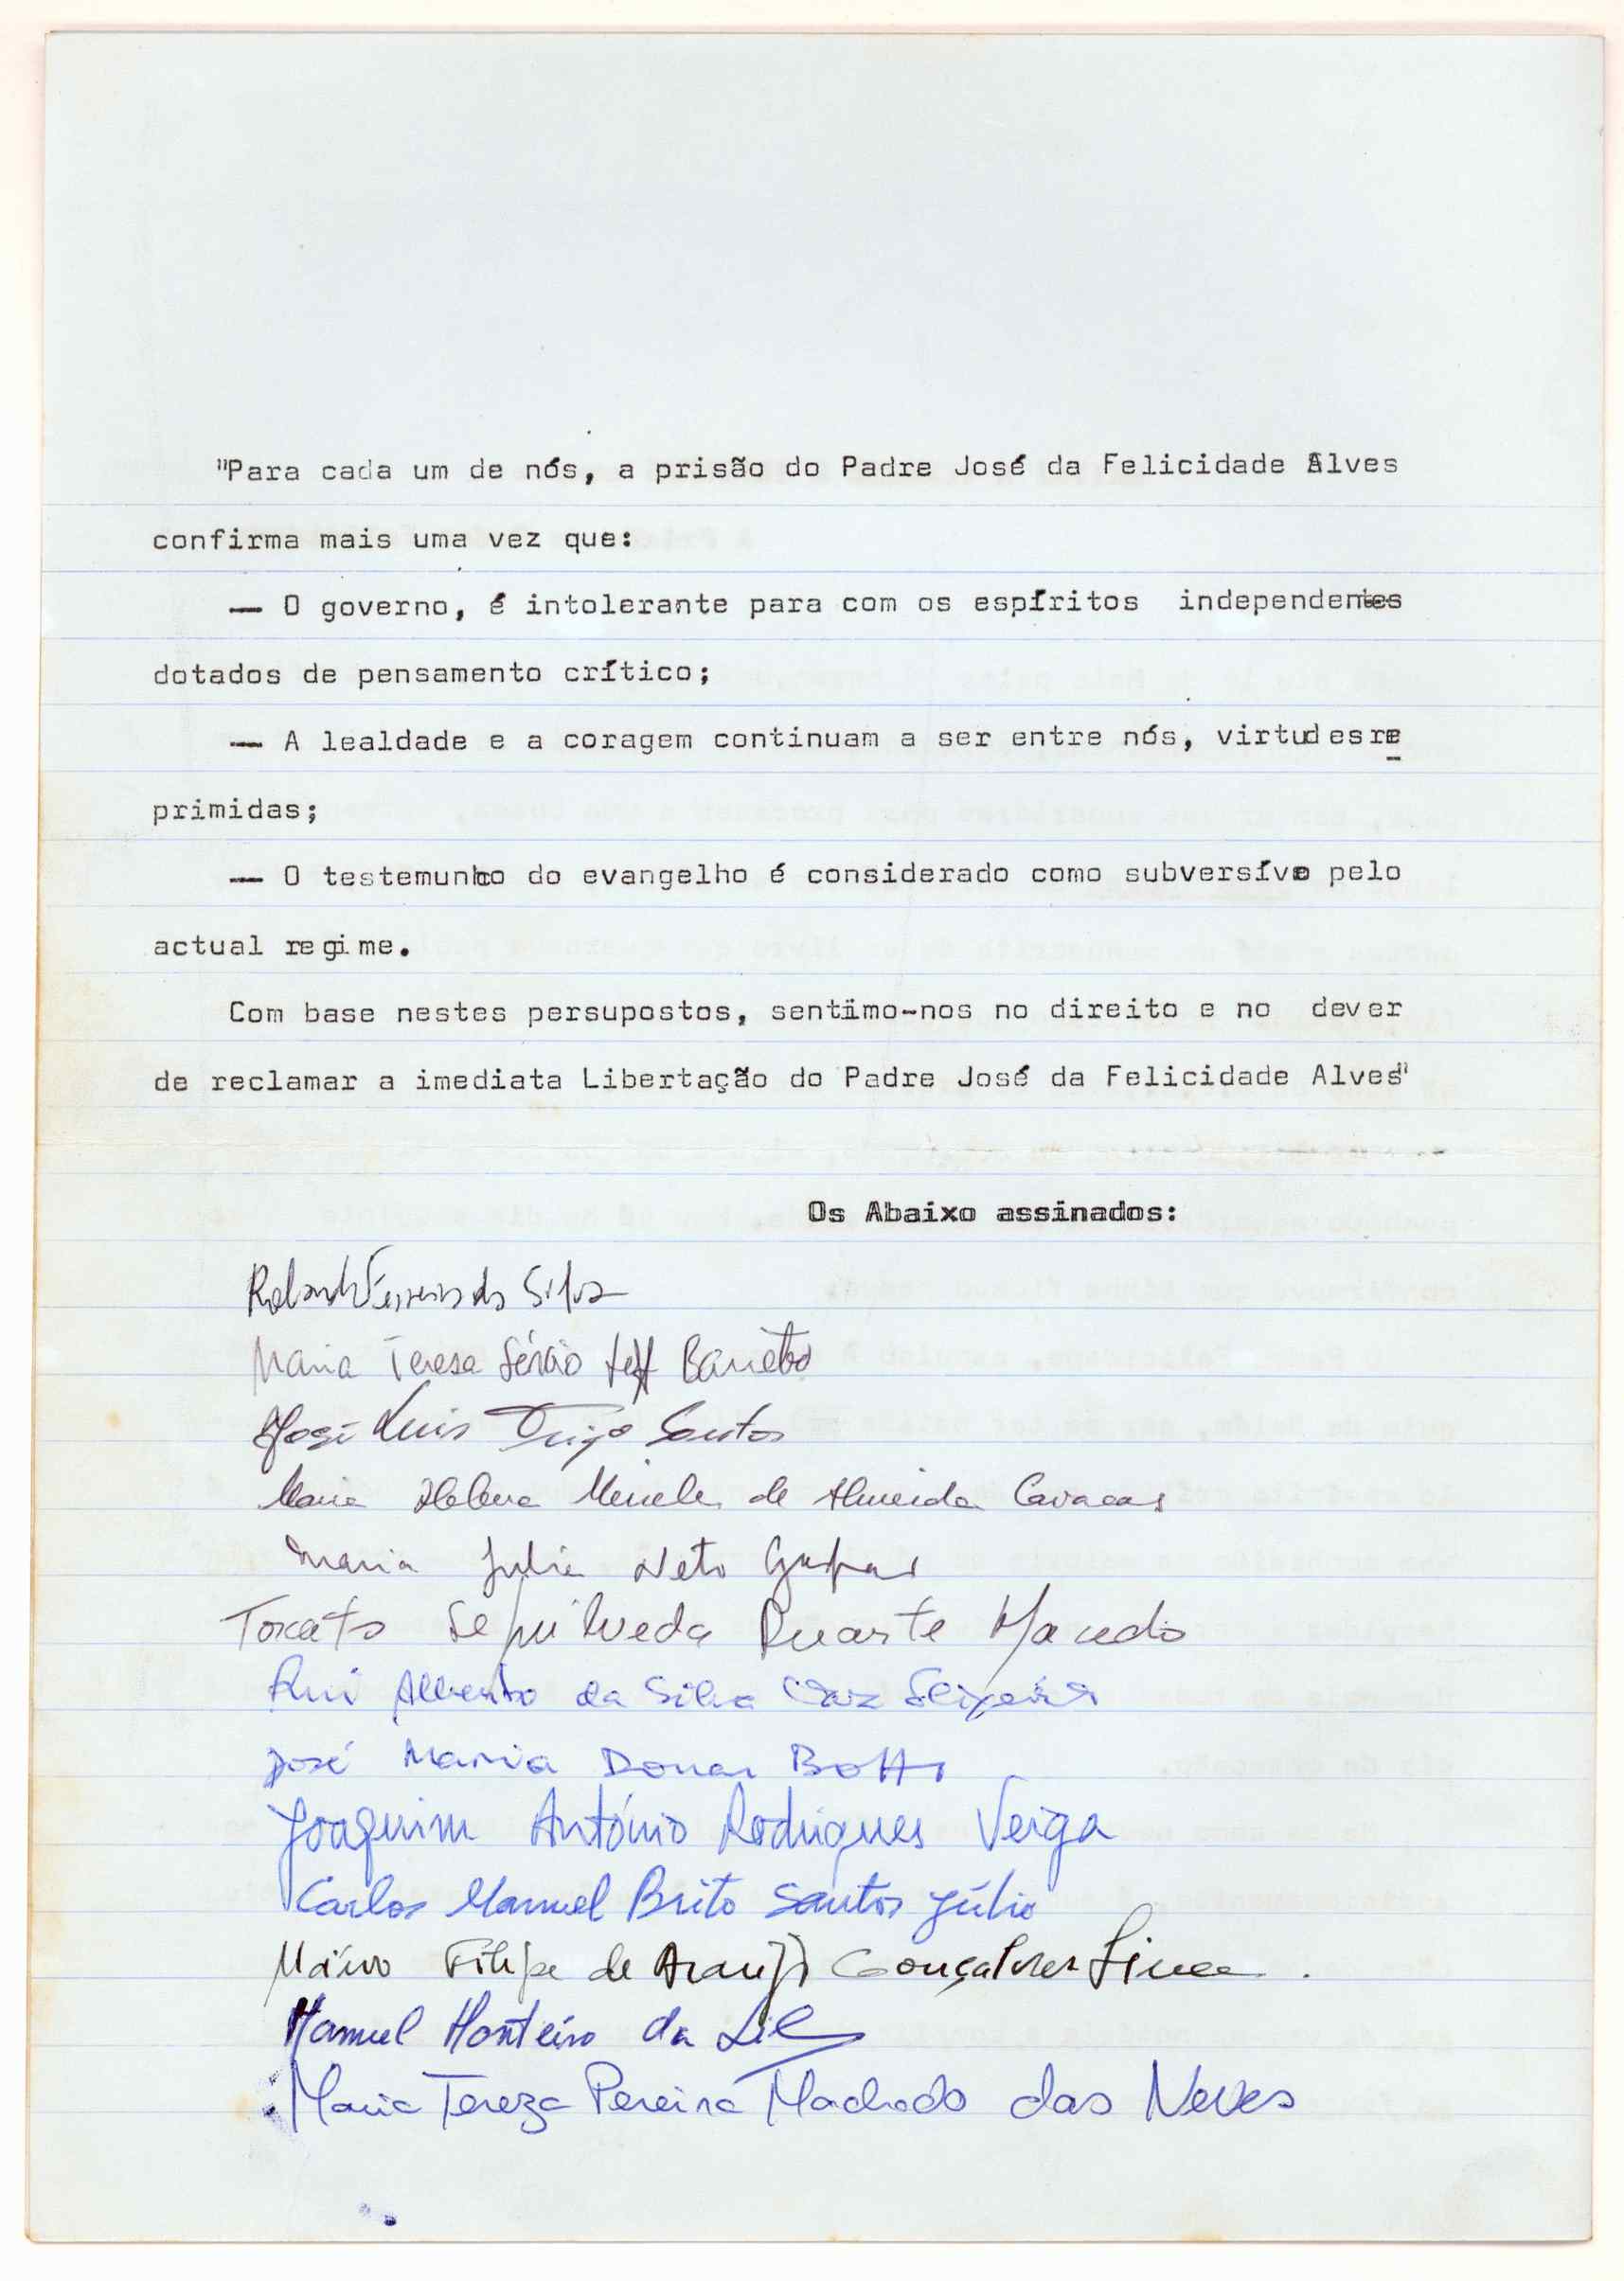 "Para cada um de nós, a prisão do Padre José da Felicidade Alves
confirma mais uma vez que:
— O governo, é intolerante para com os espíritos independentes
dotados de pensamento crítico;
— A lealdade e a coragem continuam a ser entre nós, virtudes re
primidas;
— O testemunho do evangelho é considerado como subversívo pelo
actual regime.
Com base nestes persupostos, sentimo-nos no direito e no dever
de reclamar a imediata Libertação do Padre José da Felicidade Alves"
Os Abaixo assinados:
Ferreira da Silva
Maria Teresa Sérgio Barreto
José Luis Santos
Maria Helena de Almeida Cavacas
Maria Julia Neto Gaspar
Torcato Sepulveda Duarte Macedo
Rui Alberto da Silva Vaz
José Maria
Joaquim António Rodrigues Veiga
Carlos Manuel Brito Santos Júlio
Mário Filipe de Araujo Gonçalves Lima.
Manuel Monteiro da
Maria Tereza Pereira Machado das Neves